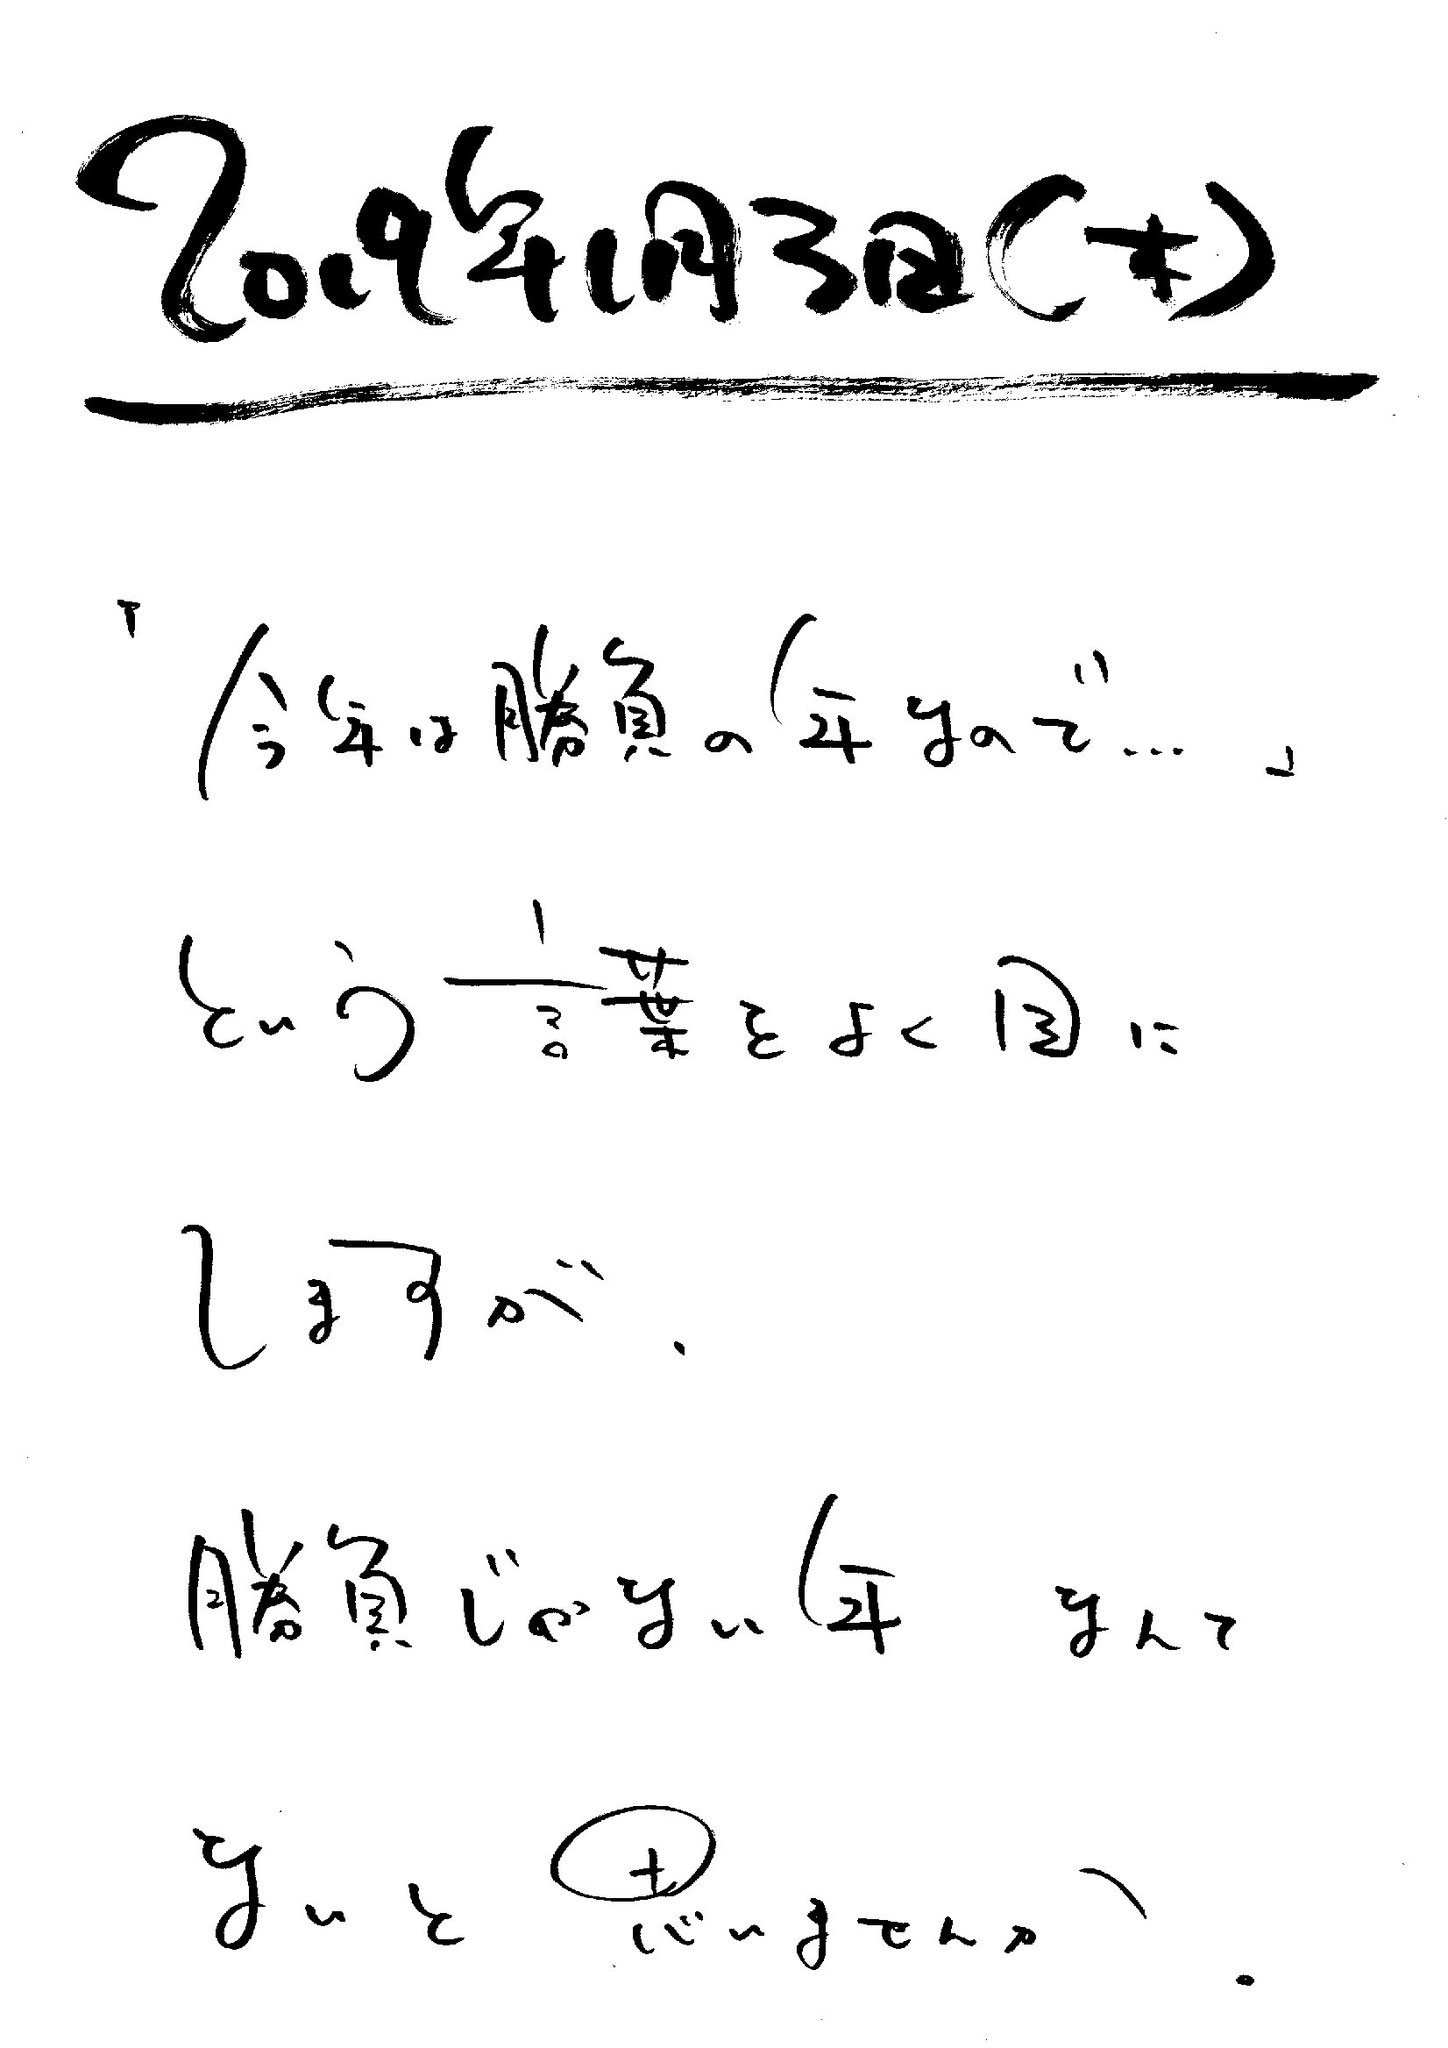 2019年1月3日(木)
「今年は勝負の年なので…」
という言葉をよく目に
しますが、
勝負じゃない年 なんて
ないと思いませんか。